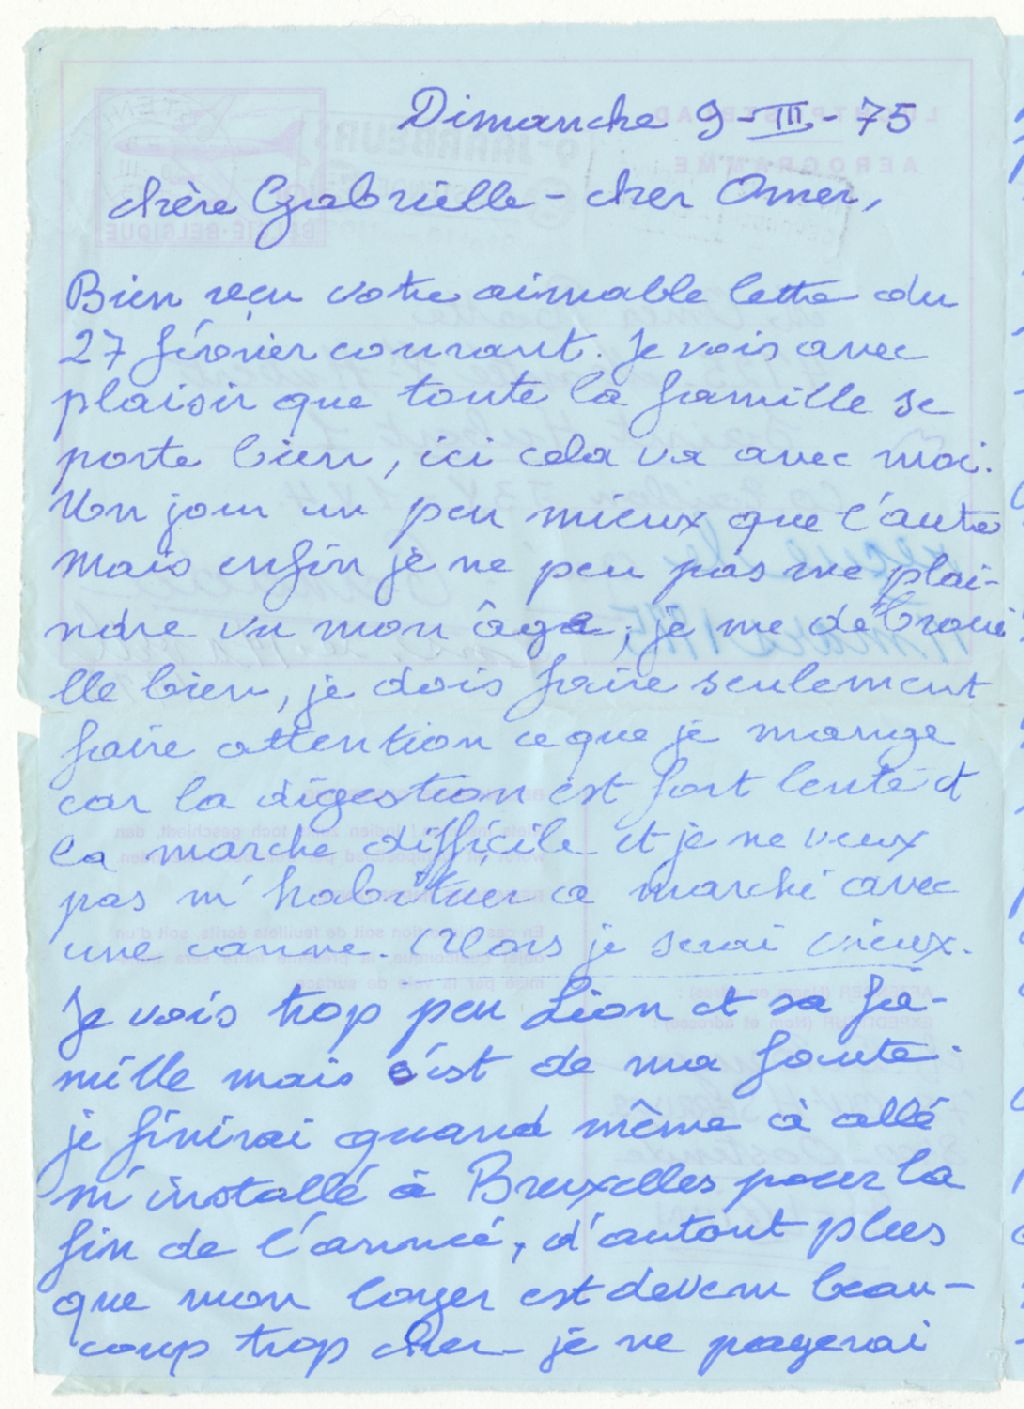 Dimanche 9-III-75
chère Gabrielle - cher Omer,
Bien reçu votre aimable lettre du
27 février courant. Je vois avec
plaisir que toute la famille se
porte bien, ici cela va avec moi.
Un jour un peu mieux que l'autre
Mais enfin je ne peu pas me plai-
ndre vu mon âge, je me débroui
lle bien, je dois faire seulement
faire attention ce que je mange
car la digestion est fort lente et
la marche difficile et je ne veux
pas m'habituer a marché avec
une canne. Alors je serai vieux.
Je vois trop peu Lion et sa fa-
mille mais c'est de ma faute.
je finirai quand même à allé
m'installé à Bruxelles pour la
fin de l'année, d'autant plus
que mon loyer est devenu beau-
coup trop cher je ne payerai